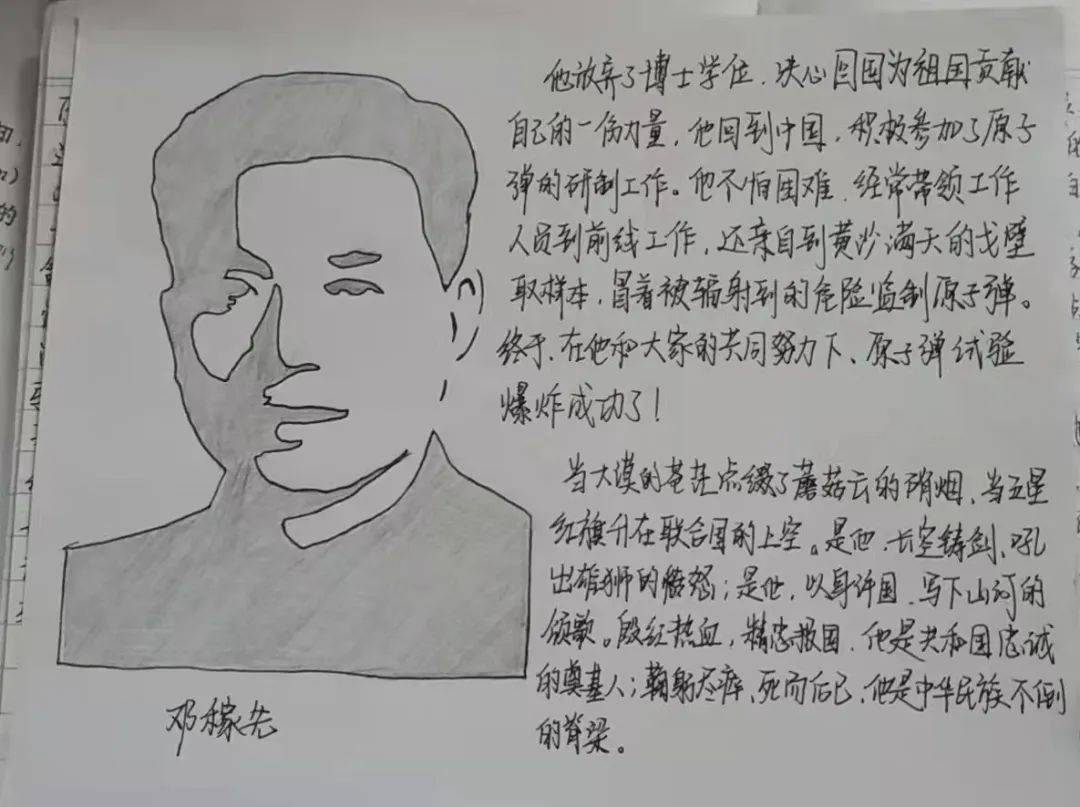 他放弃了博士学位，决心回国为祖国贡献
自己的一份力量，他回到中国，积极参加了原子
弹的研制工作。他不怕困难，经常带领工作
人员到前线工作，还亲自到黄沙满天的戈壁
取样本，冒着被辐射到的危险监制原子弹。
终于，在他和大家的共同努力下、原子弹试验
爆炸成功了！
当大漠的苍茫点缀了蘑菇云的硝烟，当五星
红旗升在联合国的上空。是他，长空铸剑，吼
出雄狮的愤怒；是他，以身许国，写下山河的
颂歌。殷红热血，精忠报国，他是共和国忠诚
的奠基人；鞠躬尽瘁，死而后已，他是中华民族不倒
的脊梁。
邓稼先